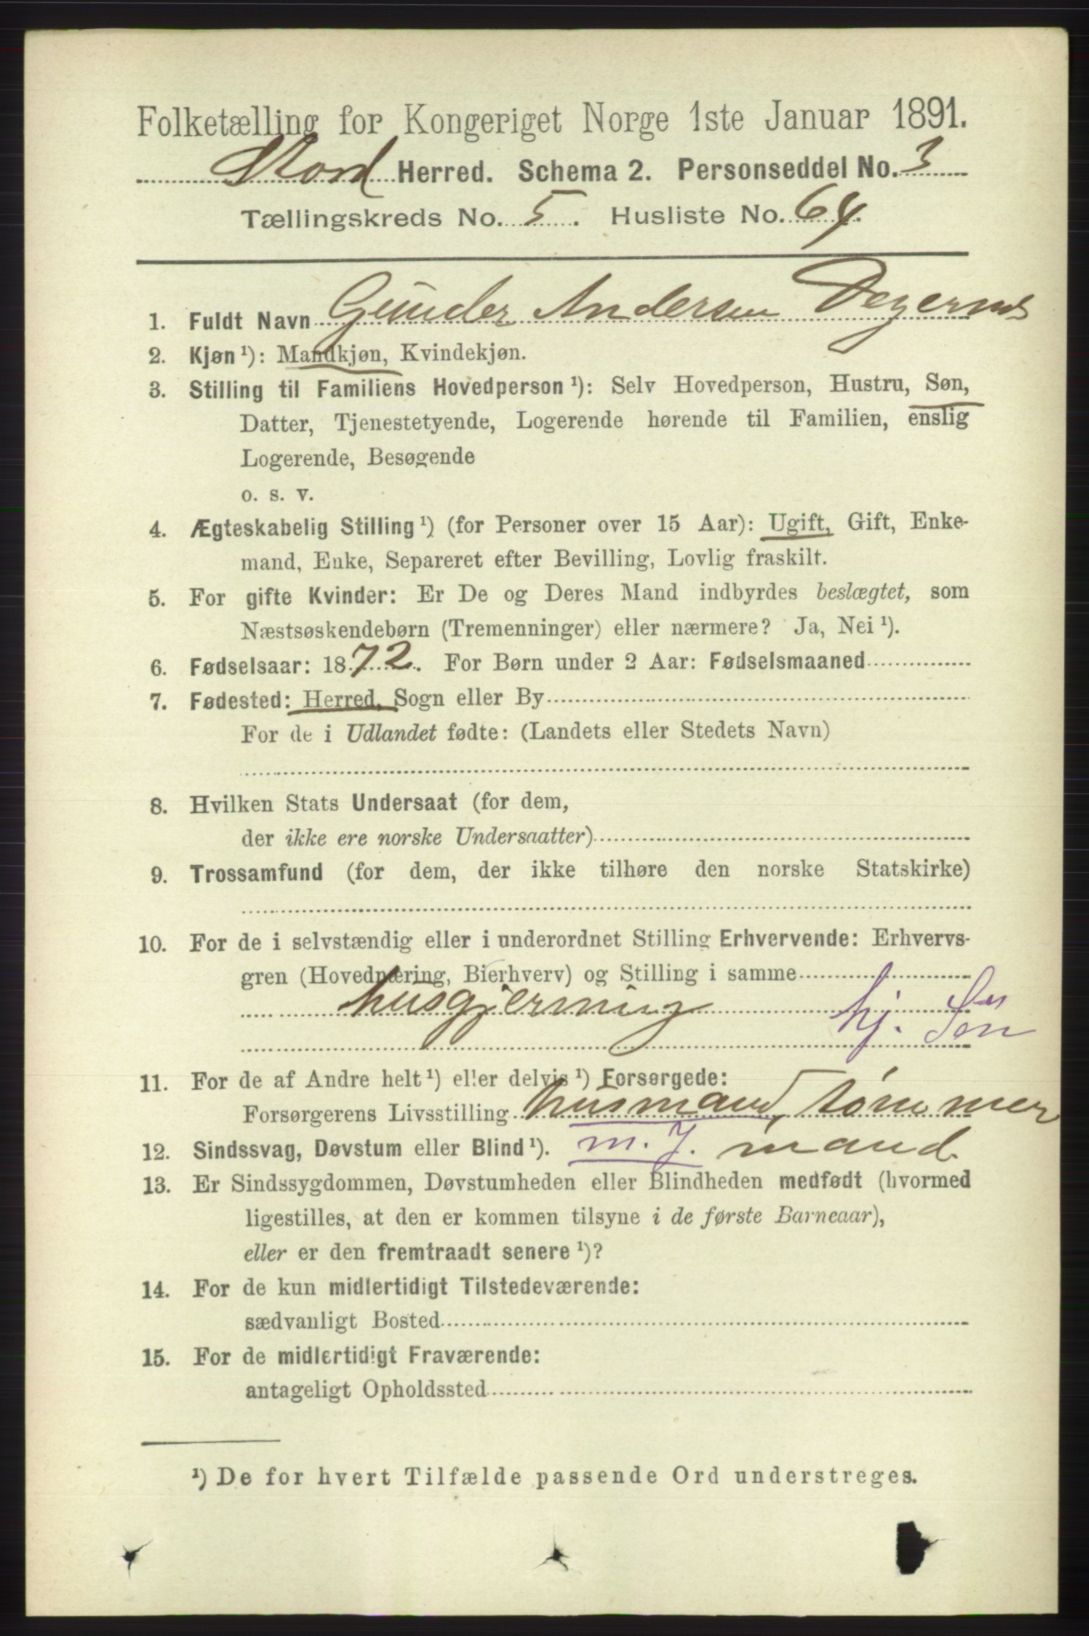 Folketælling for Kongeriget Norge 1ste Januar 1891.
Stord Herred. Schema 2. Personseddel No. 3
Tællingskreds No. 5. Husliste No. 64.
1. Fuldt Navn Gunder Andersen Degernes
2. Kjøn ¹): Mandkjøn, Kvindekjøn.
3. Stilling til Familiens Hovedperson ¹): Selv Hovedperson, Hustru, Søn,
Datter, Tjenestetyende, Logerende hørende til Familien, enslig
Logerende, Besøgende
o. s. v.
4. Ægteskabelig Stilling ¹) (for Personer over 15 Aar): Ugift, Gift, Enke-
mand, Enke, Separeret efter Bevilling, Lovlig fraskilt.
5. For gifte Kvinder: Er De og Deres Mand indbyrdes beslægtet, som
Næstsøskendebørn (Tremenninger) eller nærmere? Ja, Nei ¹).
6. Fødselsaar: 1872. For Børn under 2 Aar: Fødselsmaaned
7. Fødested: Herred, Sogn eller By
For de i Udlandet fødte: (Landets eller Stedets Navn)
8. Hvilken Stats Undersaat (for dem,
der ikke ere norske Undersaatter)
9. Trossamfund (for dem, der ikke tilhøre den norske Statskirke)
10. For de i selvstændig eller i underordnet Stilling Erhvervende: Erhvervs-
gren (Hovednæring, Bierhverv) og Stilling i samme
husgjerning hj. Søn
11. For de af Andre helt ¹) eller delvis ¹) Forsørgede:
Forsørgerens Livsstilling husmand, tømmer
12. Sindssvag, Døvstum eller Blind ¹). m. J. mand
13. Er Sindssygdommen, Døvstumheden eller Blindheden medfødt (hvormed
ligestilles, at den er kommen tilsyne i de første Barneaar),
eller er den fremtraadt senere ¹)?
14. For de kun midlertidigt Tilstedeværende:
sædvanligt Bosted
15. For de midlertidigt Fraværende:
antageligt Opholdssted
¹) De for hvert Tilfælde passende Ord understreges.